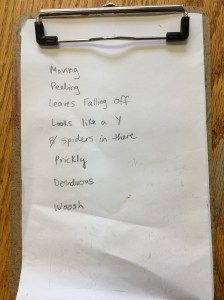 Moving
Peeling
leaves falling off
Looks like a Y
spiders in there
Prickly
Desiduous
Woosh